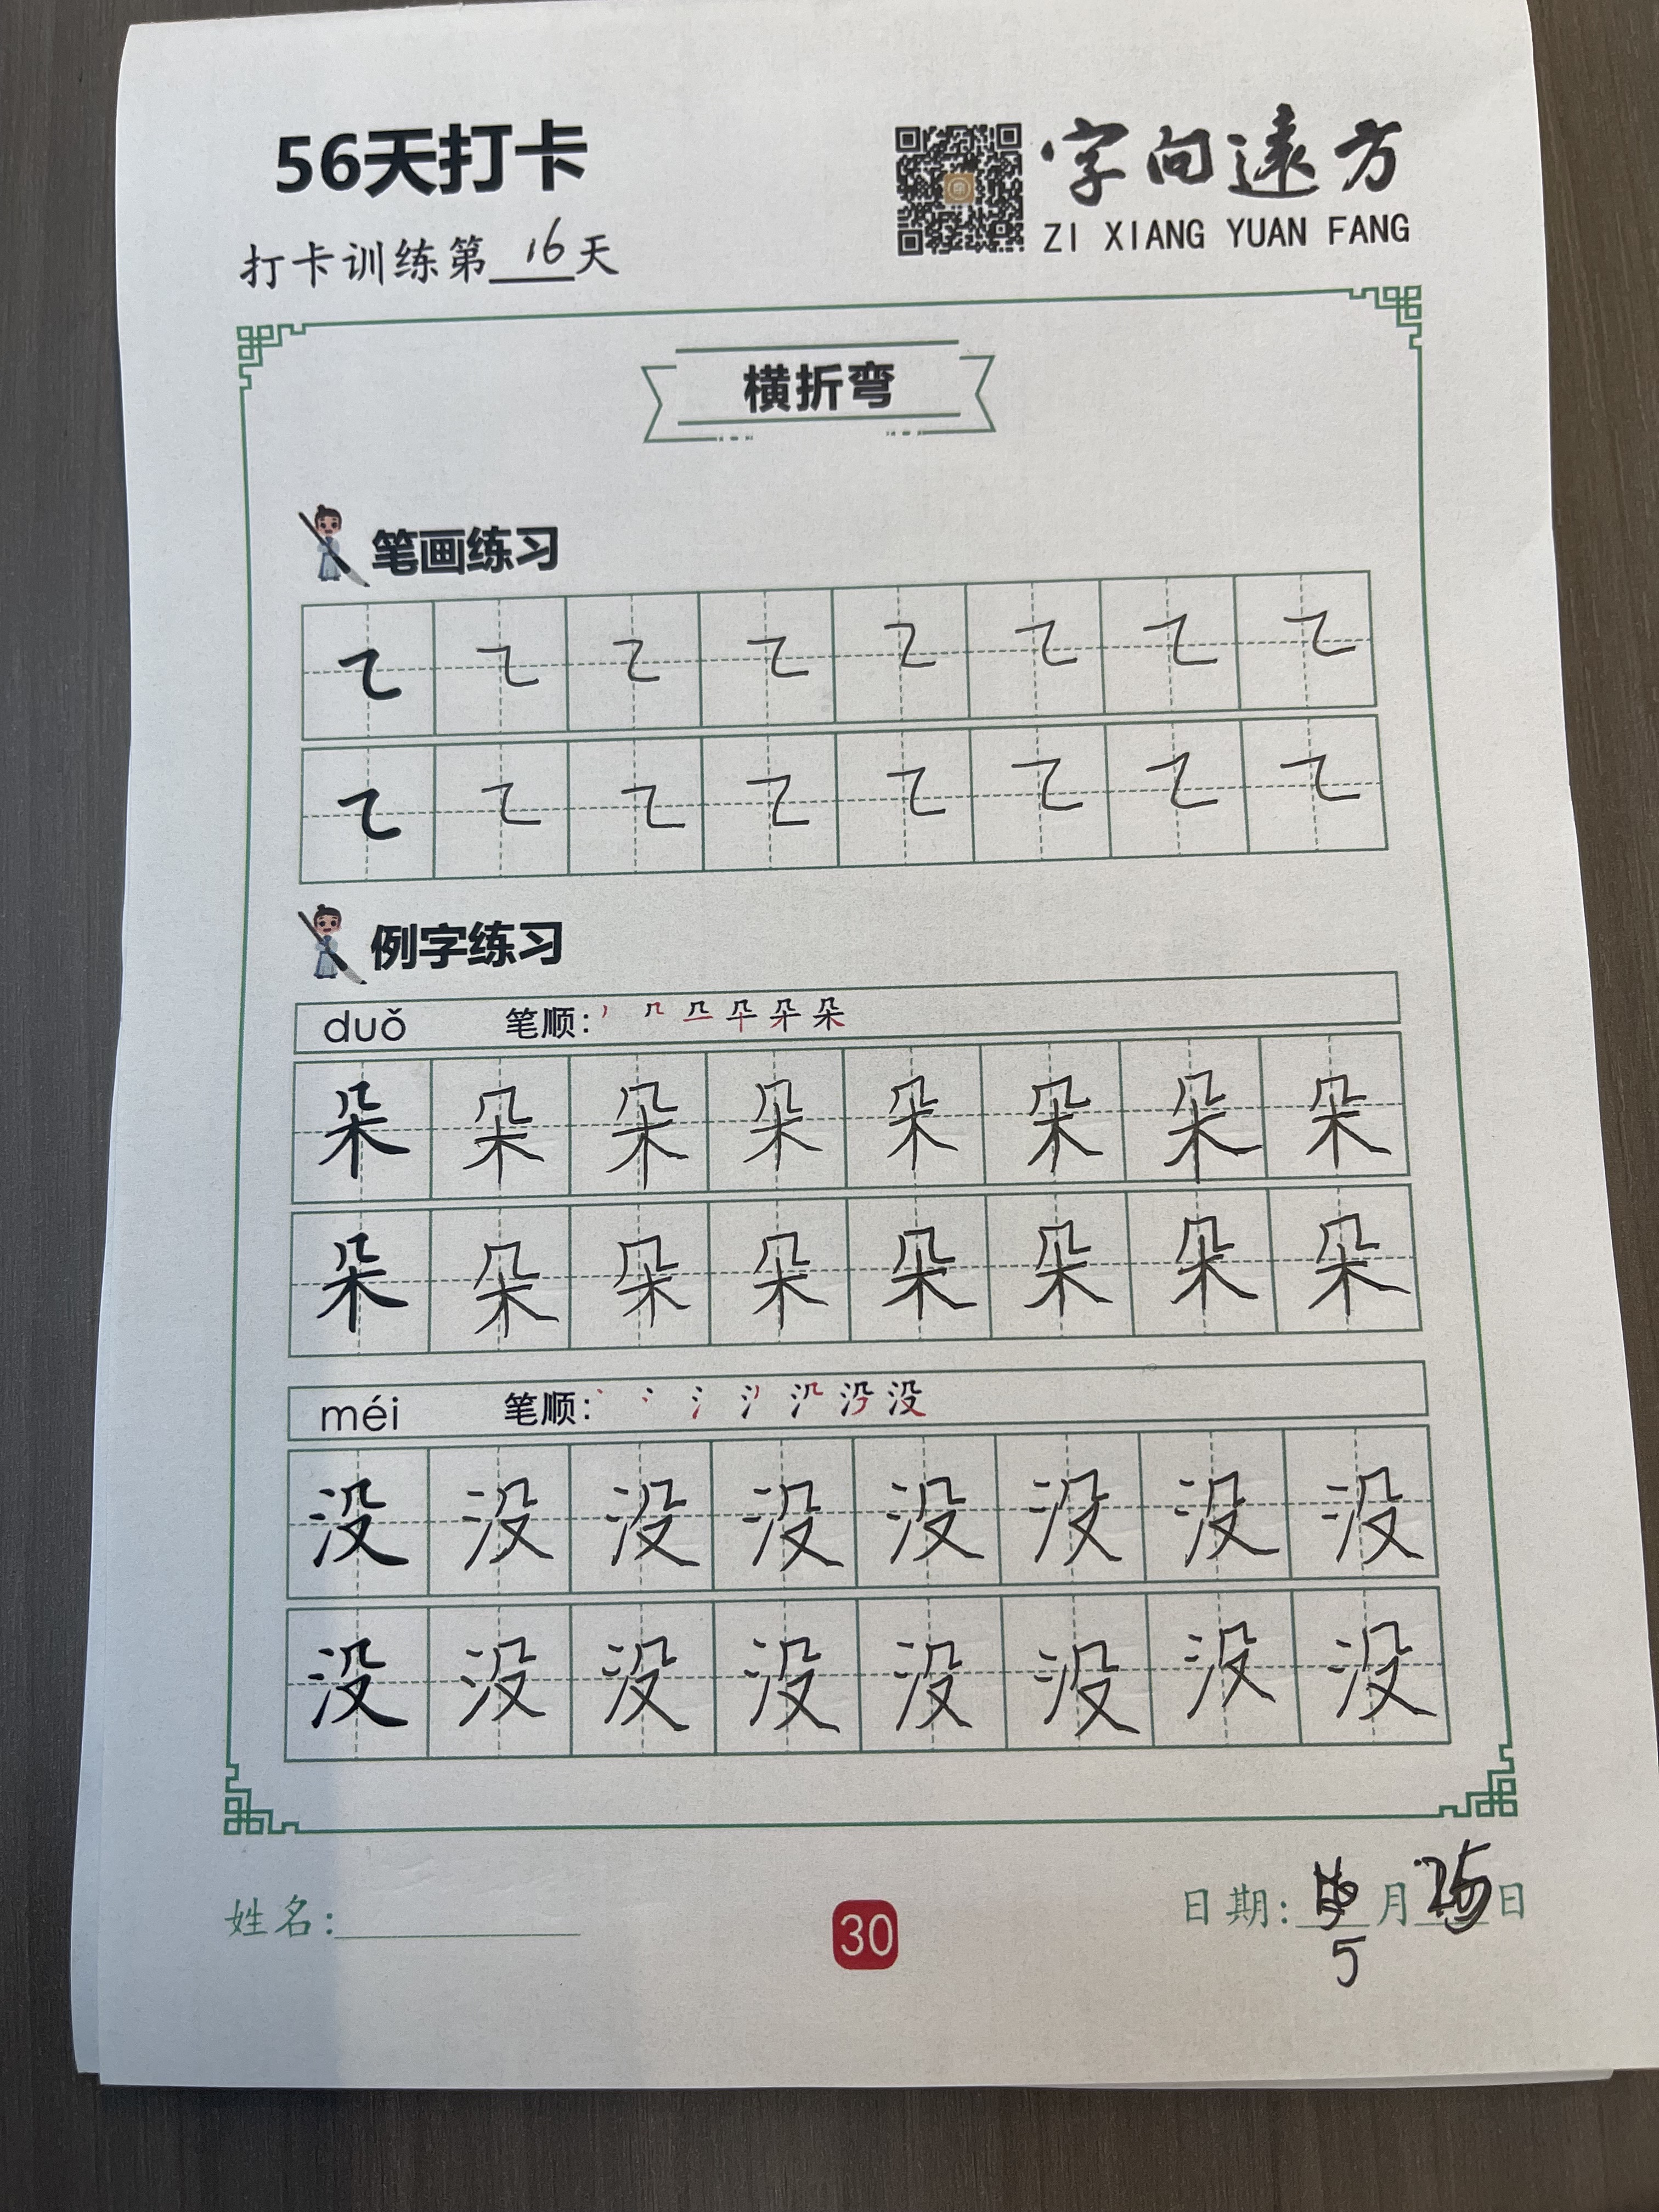 56天打卡
字向遠方
ZI XIANG YUAN FANG
打卡训练第16天
横折弯
笔画练习
㇍ ㇍ ㇍ ㇍ ㇍ ㇍ ㇍ ㇍
㇍ ㇍ ㇍ ㇍ ㇍ ㇍ ㇍ ㇍
例字练习
duǒ 笔顺:
朵 朵 朵 朵 朵 朵 朵 朵
朵 朵 朵 朵 朵 朵 朵 朵
méi 笔顺:
没 没 没 没 没 没 没 没
没 没 没 没 没 没 没 没
姓名:
30
日期: 月 日
5